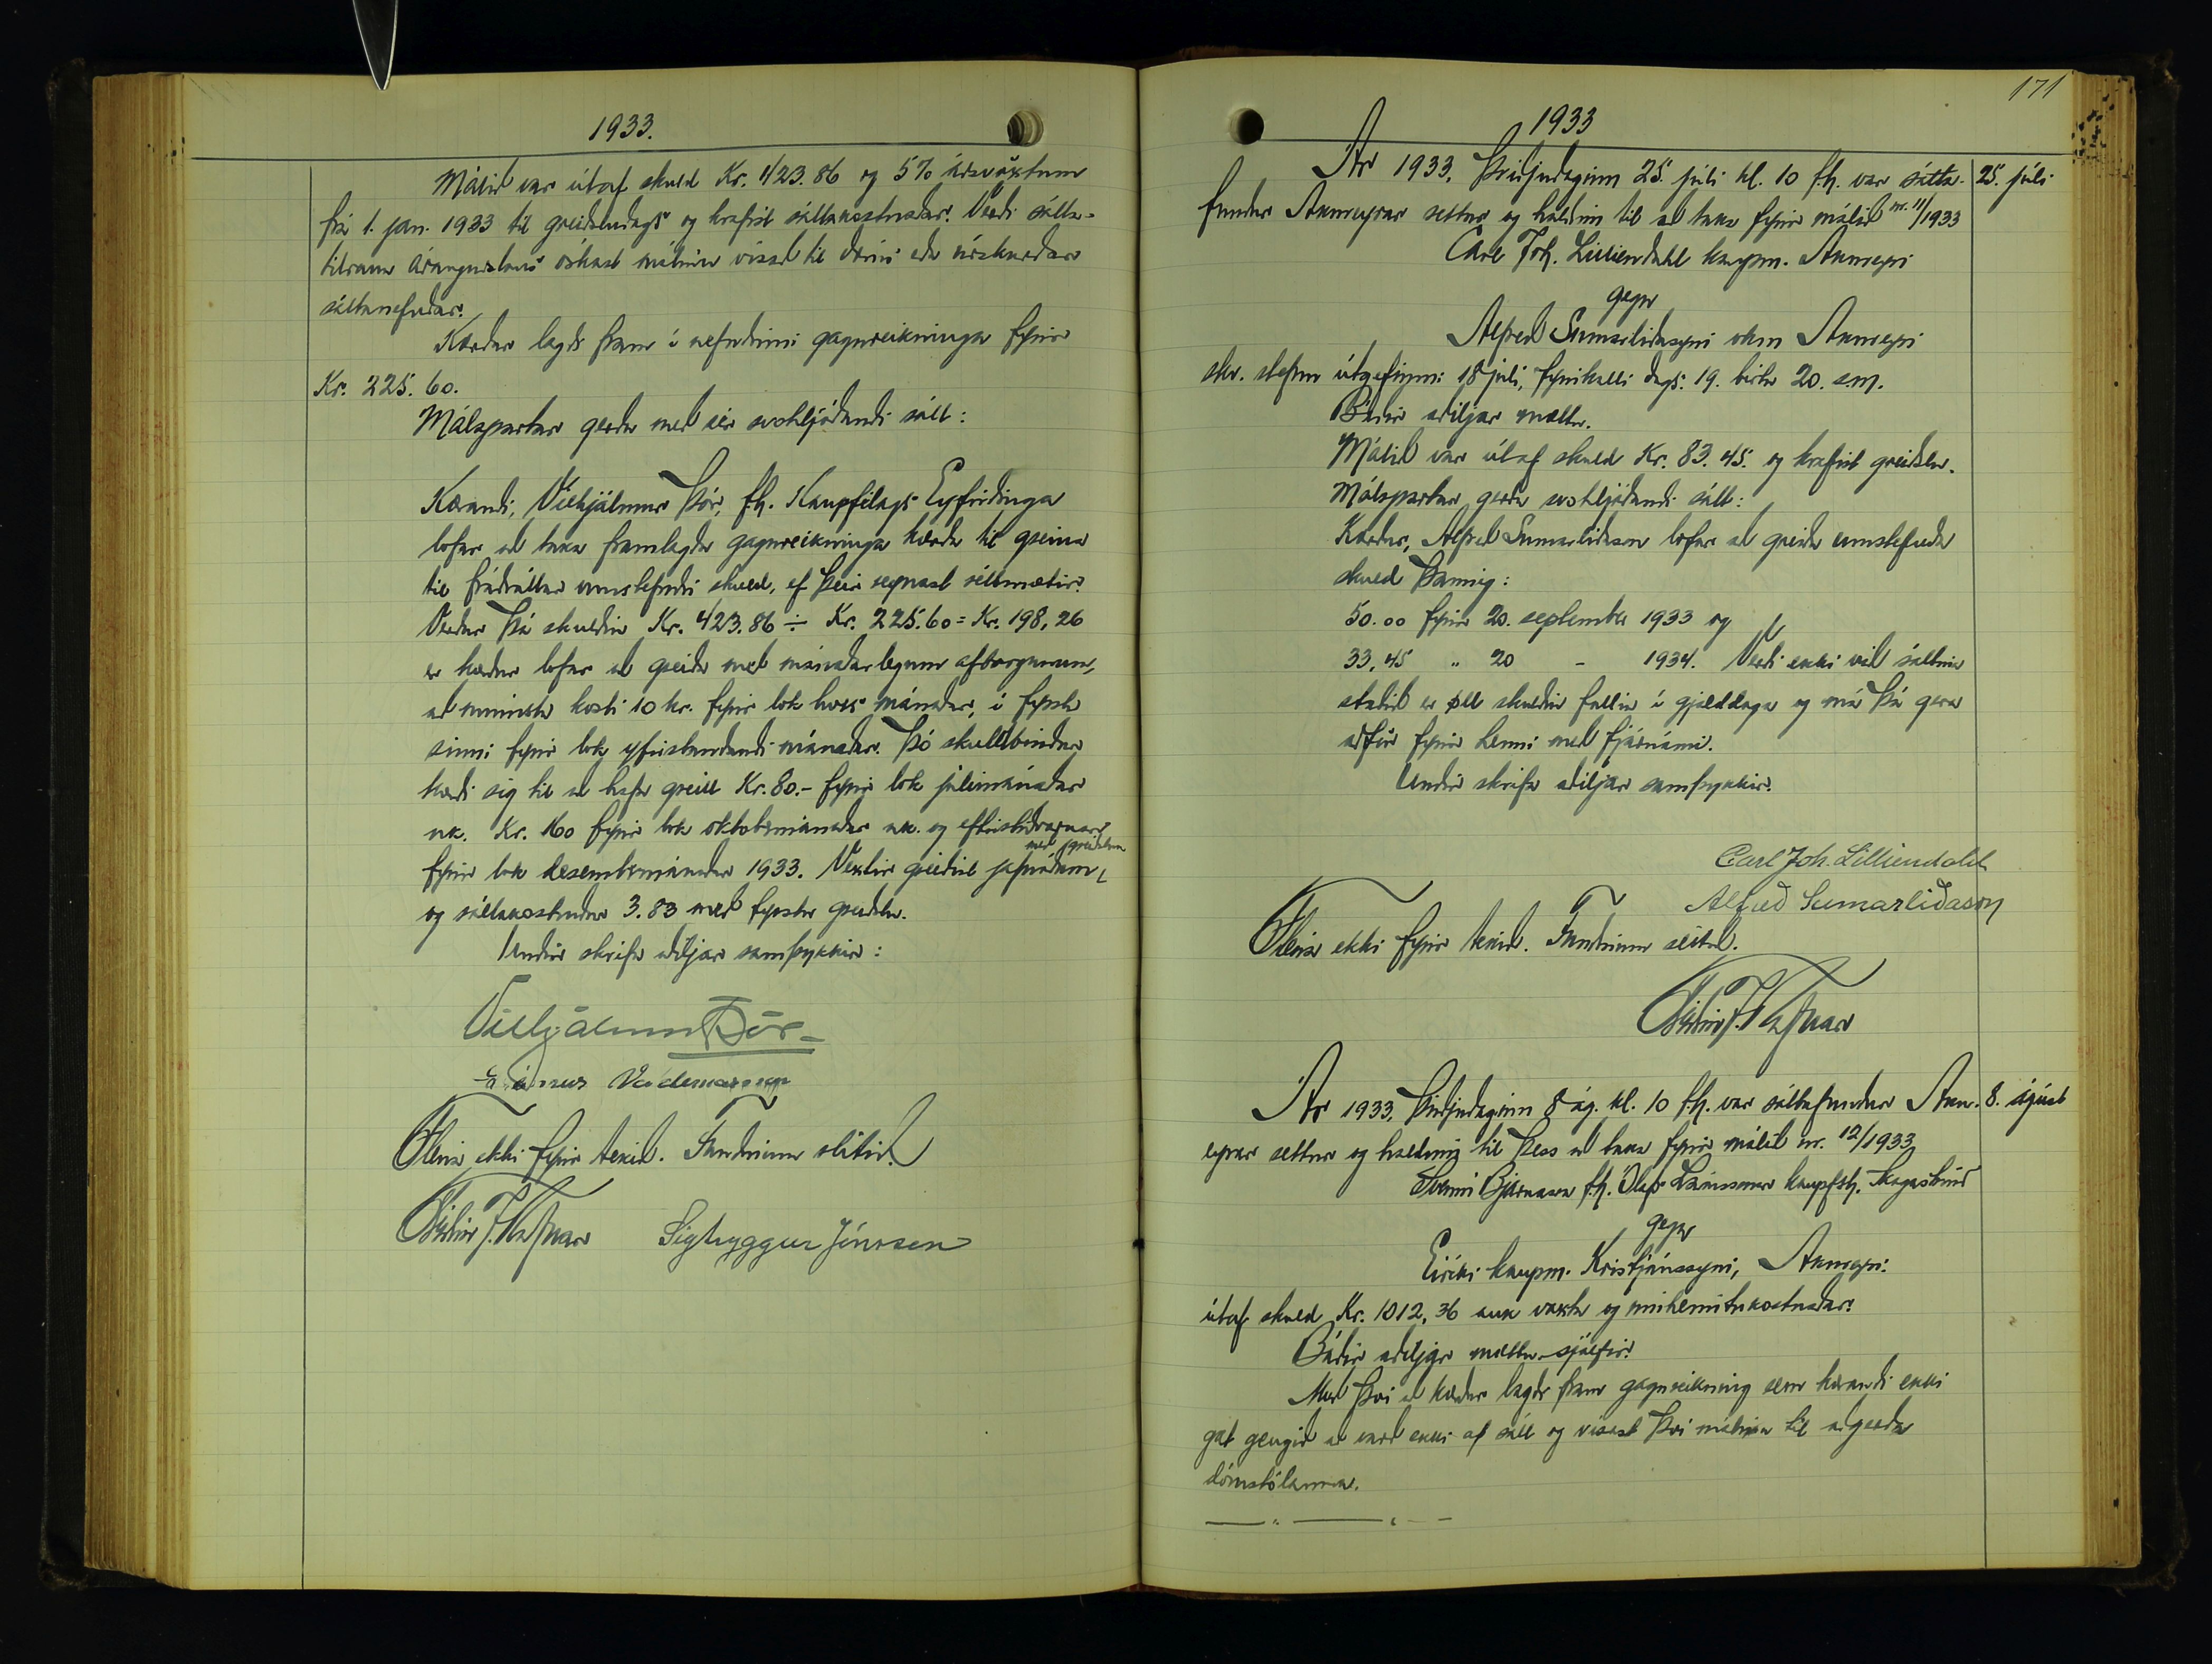 1933.
Málið var útaf skuld Kr. 423.86 og 5% ársvöxtum
frá 1. jan. 1933 til greiðsludags og krafist sáttakostnaðar. Verði sátta-
tilraun árangurslaus óskast málinu vísað til dóms eða úrskurðar
sáttanefndar.
Kærður lagði fram í nefndinni gagnreikninga fyrir
Kr. 225.60.
Málspartar gerðu með sér svohljóðandi sátt:
Kærandi, Vilhjálmur Þór, f.h. Kaupfélags Eyfirðinga
lofar að taka framlagða gagnreikninga kærða til greina
til frádráttar umstefndri skuld, ef þeir reynast réttmætir.
Verður þá skuldin Kr. 423.86 ÷ Kr. 225.60 = Kr. 198,26
er kærður lofar að greiða með mánaðarlegum afborgunum,
að minnsta kosti 10 kr. fyrir lok hvers mánaðar, í fyrsta
sinni fyrir lok yfirstandandi mánaðar. Þó skuldbindur
kærði sig til að hafa greitt Kr. 80.- fyrir lok júlímánaðar
nk. Kr. 160 fyrir lok októbermánaðar nk. og eftirstöðvarnar
með greiðslum
fyrir lok desembermánaðar 1933. Vextir greiðist jafnóðum
og sáttakostnaður 3.83 með fyrstu greiðslu.
Undir skrifa aðiljar samþykkir:
Vilhjálmur Þór
Valdemarsson
Fleira ekki fyrir tekið. Fundinum slitið.
Sigtryggur Jónsson
171
1933
Ár 1933, Þriðjudaginn 25. júlí kl. 10 f.h. var sátta-
25. júlí
fundur Akureyrar settur og haldinn til að taka fyrir málið nr. 11/1933
Carl Joh. Lilliendahl kaupm. Akureyri
gegn
Alfred Sumarliðasyni ökum Akureyri
skv. stefnu útgefinni 18 júlí, fyrirkalli dags. 19. birtu 20. s.m.
Báðir aðiljar mættu.
Málið var útaf skuld Kr. 83.45. og krafist greiðslu.
Málspartar gerðu svohljóðandi sátt:
Kærður, Alfred Sumarliðason lofar að greiða umstefnda
skuld þannig:
50.00 fyrir 20. september 1933 og
33,45 " 20 - 1934. Verði ekki við sáttina
staðið er öll skuldin fallin í gjalddaga og má þá gera
aðför fyrir henni með fjárnámi.
Undir skrifa aðiljar samþykkir.
Carl Joh. Lilliendahl
Alfred Sumarliðason
Fleira ekki fyrir tekið. Fundinum slitið.
Ár 1933, Þriðjudaginn 8 ág. kl. 10 f.h. var sáttafundur Akur-
8. ágúst
eyrar settur og haldinn til þess að taka fyrir málið nr. 12/1933
Sveinn Bjarnason f.h. Ólafs Lárussonar kaupfstj. Skagaströnd
gegn
Eiríki kaupm. Kristjánssyni, Akureyri
útaf skuld Kr. 1012,36 auk vaxta og innheimtukostnaðar.
Báðir aðiljar mættu sjálfir.
Með því að kærður lagði fram gagnreikning sem kærandi ekki
gat gengið að varð ekki af sátt og vísast því málinu til aðgerða
dómstólanna.